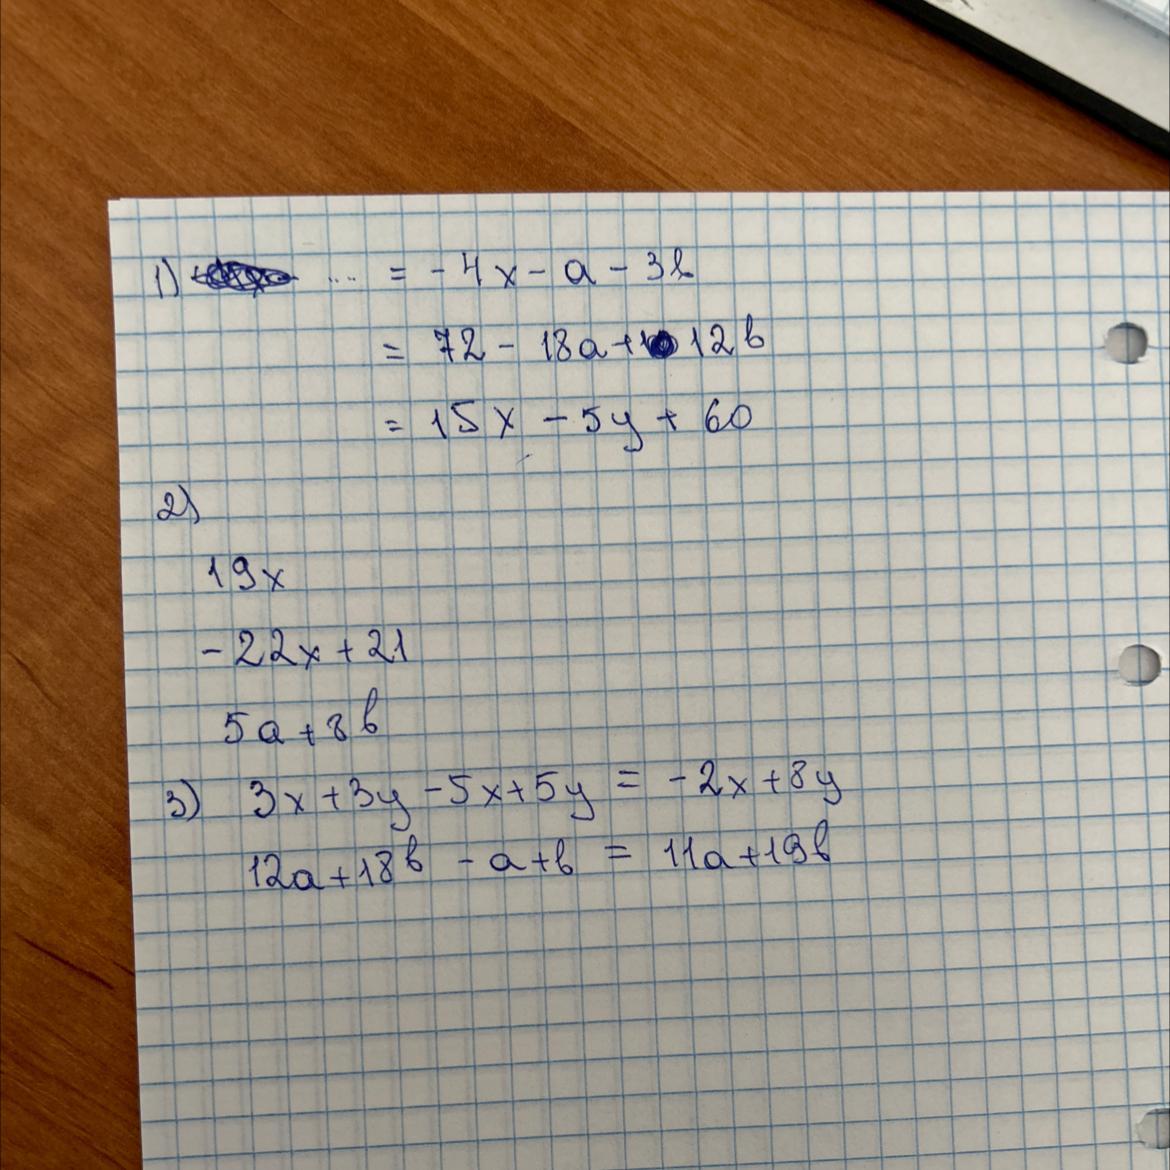 1) ... = - 4x - a - 3b
= 72 - 18a + 12b
= 15x - 5y + 60
2)
19x
- 22x + 21
5a + 8b
3) 3x + 3y - 5x + 5y = - 2x + 8y
12a + 18b - a + b = 11a + 19b